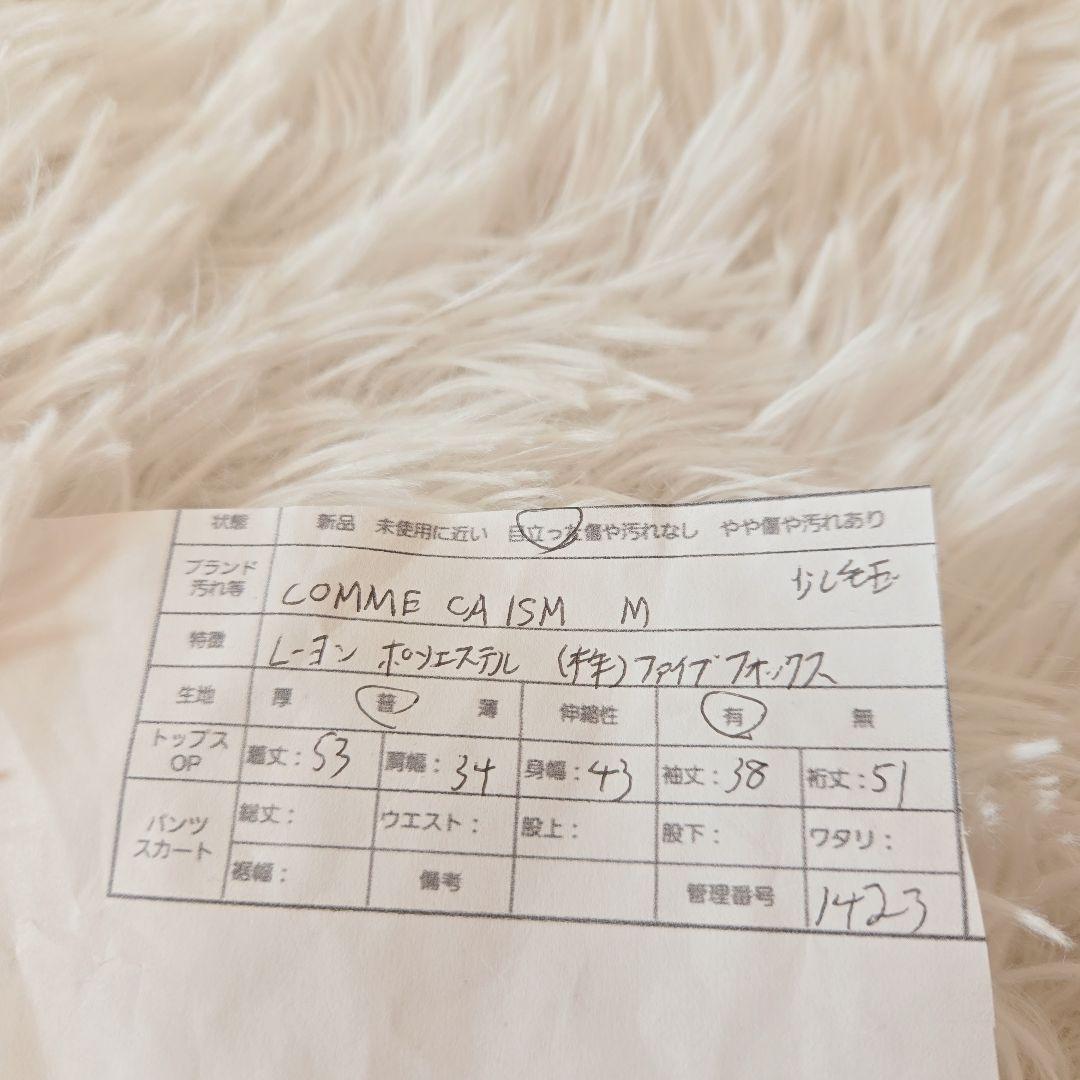 状態 新品 未使用に近い 目立った傷や汚れなし やや傷や汚れあり
ブランド 汚れ等 COMME CA ISM M 少し毛玉
特徴 レーヨン ポリエステル (株)ファイブフォックス
生地 厚 普 薄 伸縮性 有 無
トップス OP 着丈:53 肩幅:34 身幅:43 袖丈:38 裄丈:51
パンツ スカート 総丈: ウエスト: 股上: 股下: ワタリ:
裾幅: 備考 管理番号 1423